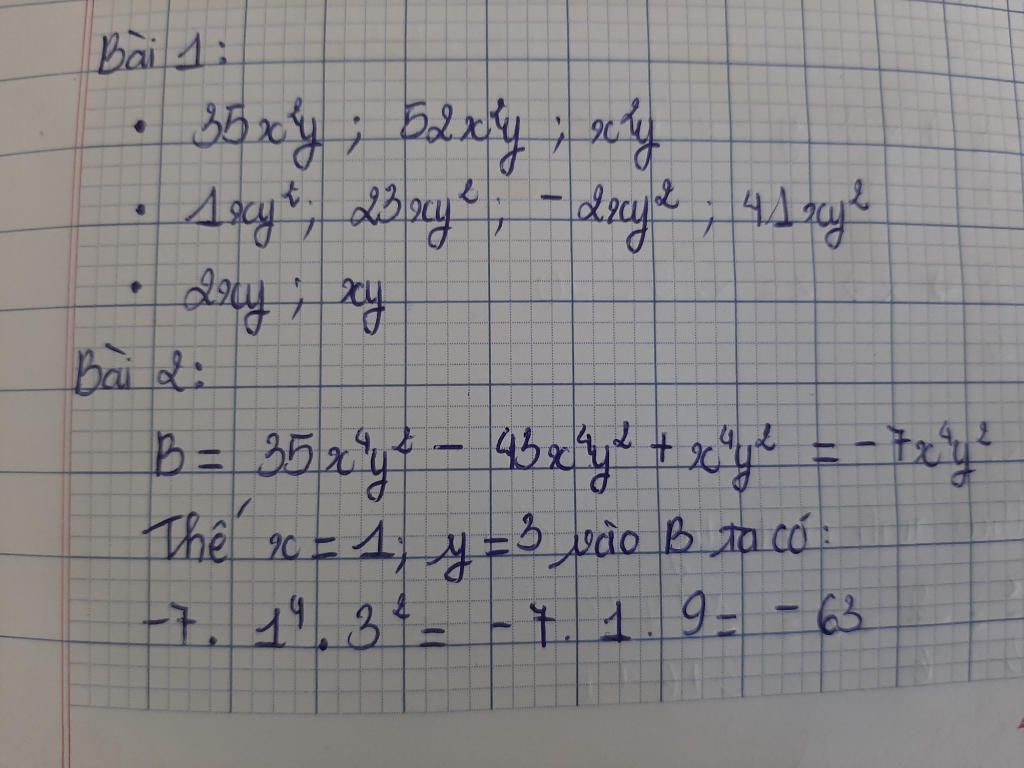 Bài 1:
• 35x²y ; 52x²y ; x²y
• 1xy²; 23xy²; - 2xy² ; 41xy²
• 2xy ; xy
Bài 2:
B = 35x⁴y² - 43x⁴y² + x⁴y² = -7x⁴y²
Thế x = 1; y = 3 vào B ta có:
-7. 1⁴ . 3² = -7. 1. 9 = -63